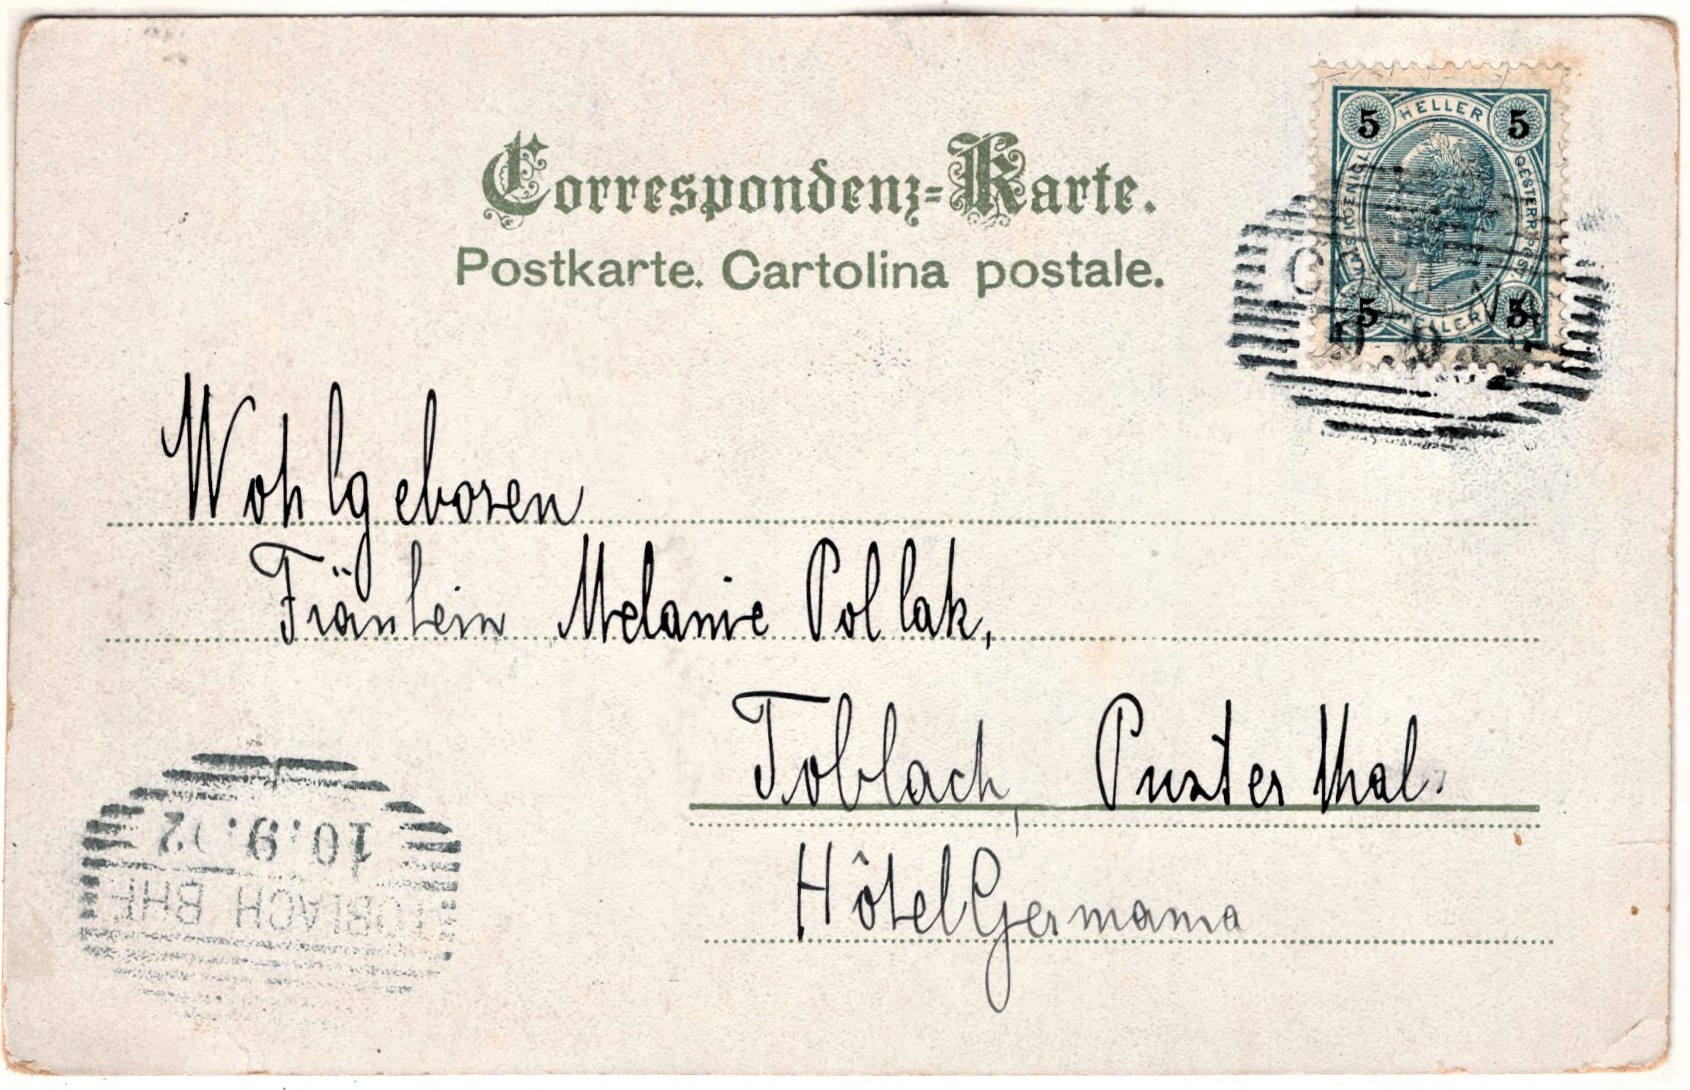 Correspondenz-Karte.
Postkarte. Cartolina postale.
5 HELLER 5
KAIS. KOENIGL. OESTERR. POST.
5 HELLER 5
Wohlgeboren
Fräulein Melanie Pollak,
Toblach, Pusterthal.
Hôtel Germania
10.9.02
TOBLACH BHF